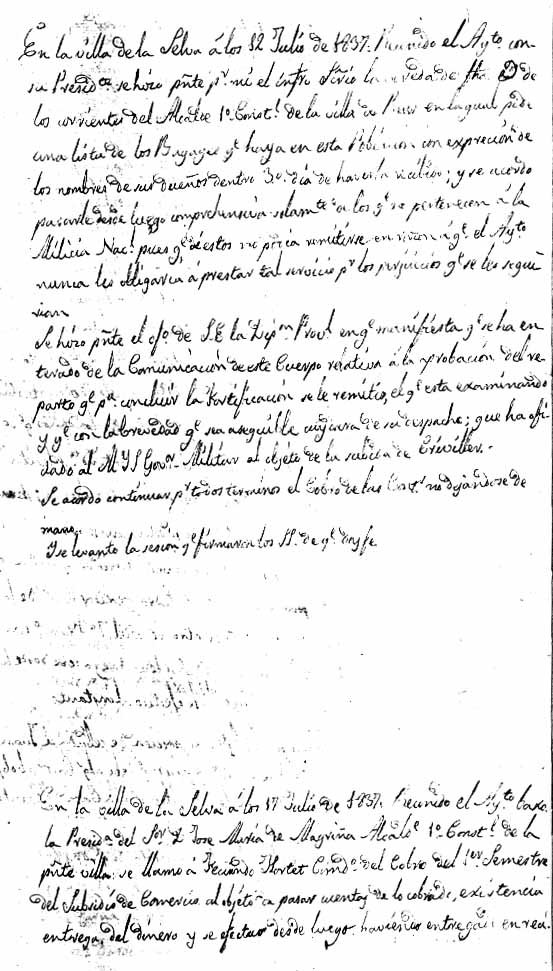 En la villa de la Selva á los 12 Julio de 1837. Reunido el Ayto. con
su Presid.ª se hizo pñte pr. mi el infro Srio la de fha 9 de
los corrientes del Alcalde 1º Const.l de la villa de en la qual pide
una lista de los Bagages qe. haya en esta Poblacion con expreción de
los nombres de sus dueños dentro 3.º dia de haverla recibido; y se acordó
pasarle desde luego comprehensiva solamte. a los qe. no pertenecen á la
Milicia Nacl. pues qe. de estos no podia remitirse en razon á qe. el Ayto.
nunca les obligaria á prestar tal servicio pr. los perjuicios qe. se les segui
rian.
Se hizo pñte el ofo. de S.E. la Dipon. Provl. en qe. manifiesta qe. se ha en
terado de la Comunicación de este Cuerpo relativa á la aprobación del re
parto qe. pa. concluir la fortificación se le remitió, el qe. está examinando
y qe. con la brevedad qe. sea asequible de su despacho; que ha ofi
ciado al M Y S Govor. Militar al objeto de la subida de
Se acordo continuar pr. todos terminos el Cobro de las no dejándose de
mano.
Y se levanto la sesión qe. firmaron los SS. de qe. doy fe
En la villa de la Selva á los 17 Julio de 1837. Reunido el Ayto. baxo
la Presida. del Sor. D. Jose Maria de Magriña Alcale. 1º Constl. de la
pñte villa, se llamó á Fortet Comdo. del Cobro del 1er. Semestre
del Subsidio de Comercio al objeto de pasar cuentas de lo cobrado, existencia
entrega del dinero y se efectuo desde luego haviendo entregado en rea